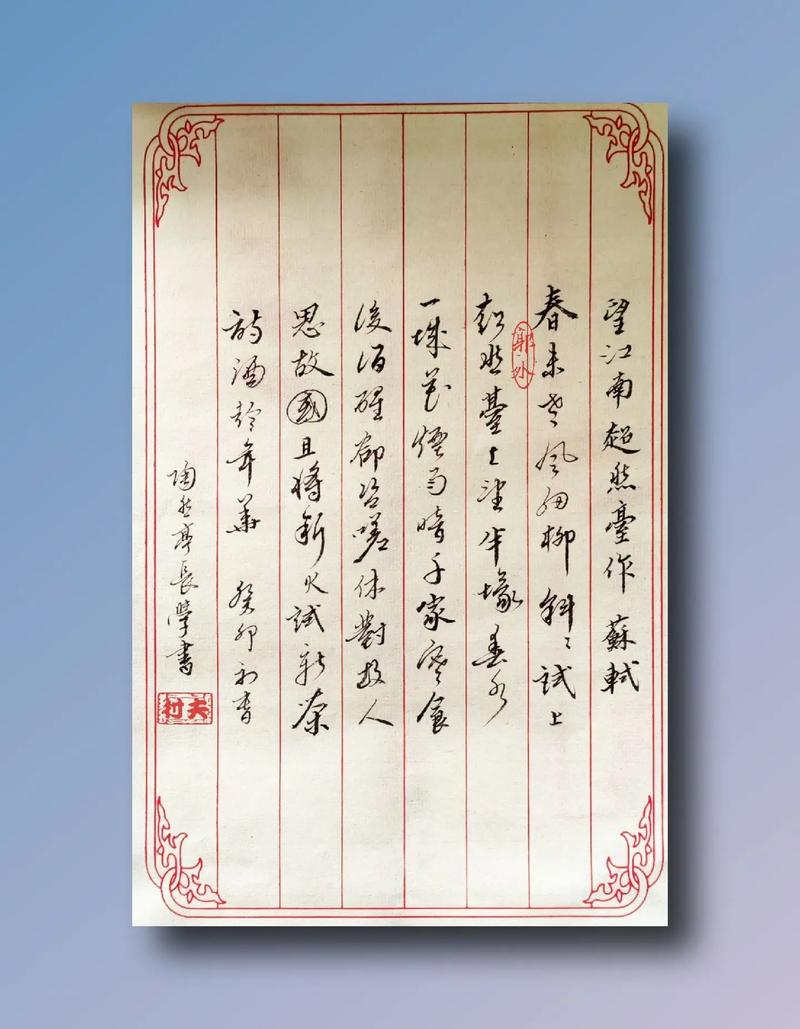 望江南超然臺作 蘇軾
春未老風細柳斜〻試上
郭外
超然臺上望半壕春水
一城花煙雨暗千家寒食
後酒醒卻咨嗟休對故人
思故國且將新火試新茶
詩酒趁年華 癸卯初春
陶然亭長學書
村夫